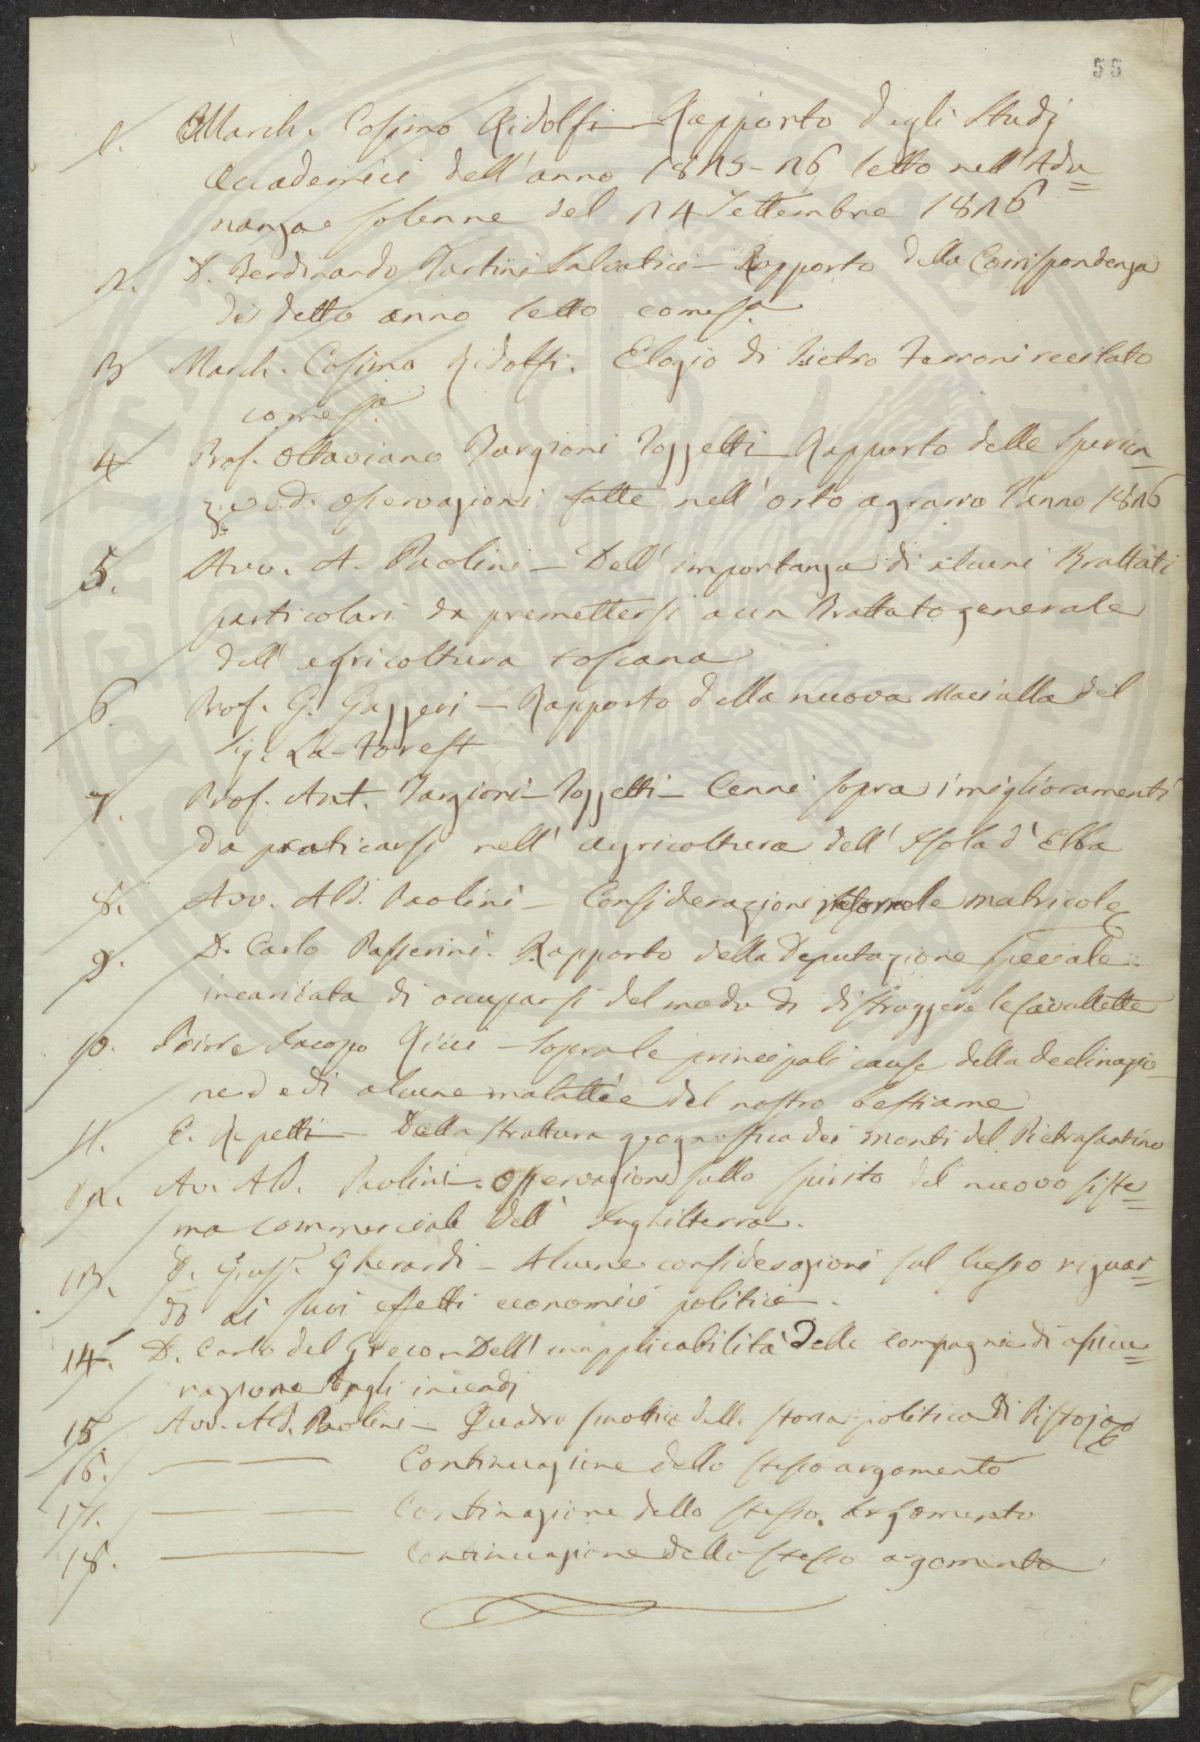 55
1. March. Cosimo Ridolfi — Rapporto degli Studj
Accademici dell'anno 1825-26 letto nell'Adu=
nanza solenne del 24 Settembre 1826
2. D. Ferdinando Tartini Salvatici — Rapporto della Corrispondenza
di detto anno letto come sa
3 March. Cosimo Ridolfi. Elogio di Pietro Ferroni recitato
come sa
4 Prof. Ottaviano Targioni Tozzetti — Rapporto delle sperien=
ze ed osservazioni fatte nell'orto agrario l'anno 1826
5. Avv. A. Paolini — Dell'importanza di alcuni Trattati
particolari da premettersi a un Trattato generale
dell'agricoltura toscana
6. Prof. G. Gazzeri — Rapporto della nuova Maciulla del
Sig. La-Forest
7. Prof. Ant. Targioni-Tozzetti — Cenni sopra i miglioramenti
da praticarsi nell'agricoltura dell'Isola d'Elba
8. Avv. Ald. Paolini — Considerazioni intorno le matricole
9. D. Carlo Passerini. Rapporto della Deputazione speciale
incaricata di occuparsi del modo di distruggere le cavallette
10. Priore Jacopo Ricci — Sopra le principali cause della declinazio=
ne ed di alcune malattie del nostro bestiame
11. E. Repetti — Della struttura geognostica dei monti del Pietrasantino
12. Av. Ald. Paolini. Osservazioni sullo spirito del nuovo siste=
ma commerciale dell'Inghilterra.
13. D. Giusp. Gherardi — Alcune considerazioni sul lusso riguar=
do ai suoi effetti economici politici.
14. D. Carlo del Greco — Dell'inapplicabilità delle compagnie di assicu=
razione dagli incendj
15 Avv. Ald. Paolini — Quadro della storia politica di Pistoja
16. — — Continuazione dello stesso argomento
17. — — Continazione dello stesso argomento
18. — Continuazione dello stesso argomento